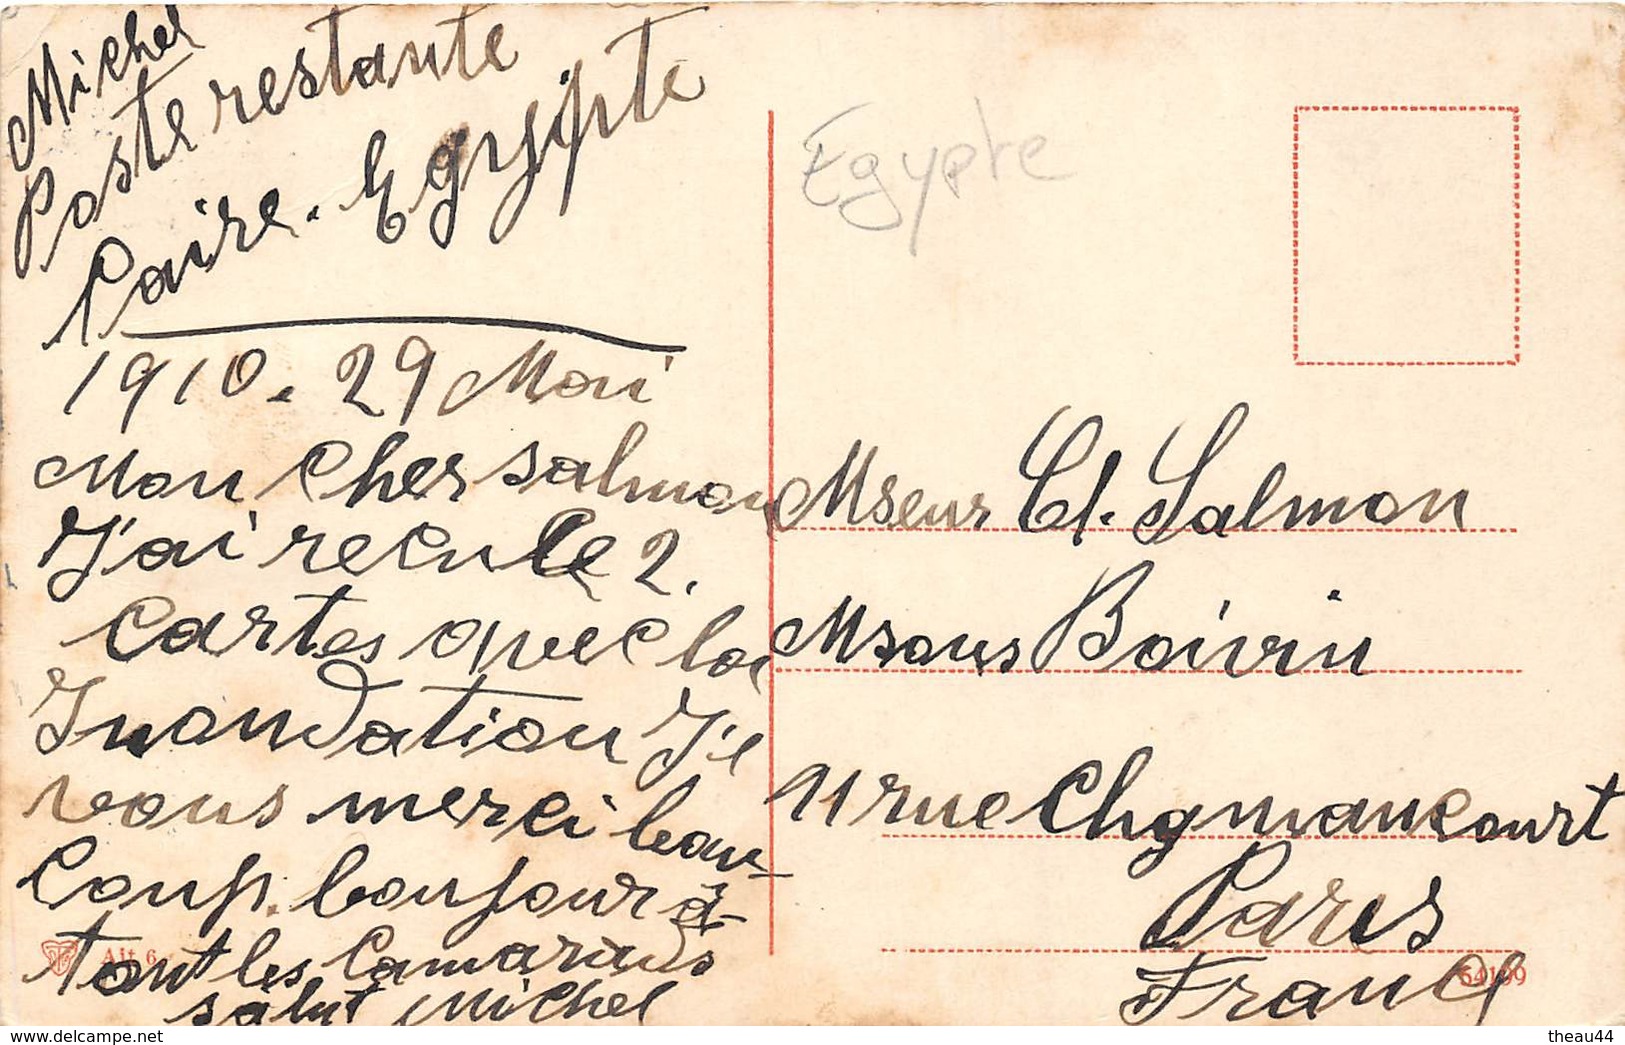 Michel
Poste restante
Caire. Egypte
1910. 29 Mai
Mon cher salmon
J'ai recu le 2.
cartes avec la
Inondation J'e
vous merci beau-
coup. bonjour à
tout les Camarads
salut Michel
Egypte
Mseur Cl. Salmon
Msons Boivin
11 rue Chgmancourt
Paris
France
Ait 6
64109
theau44